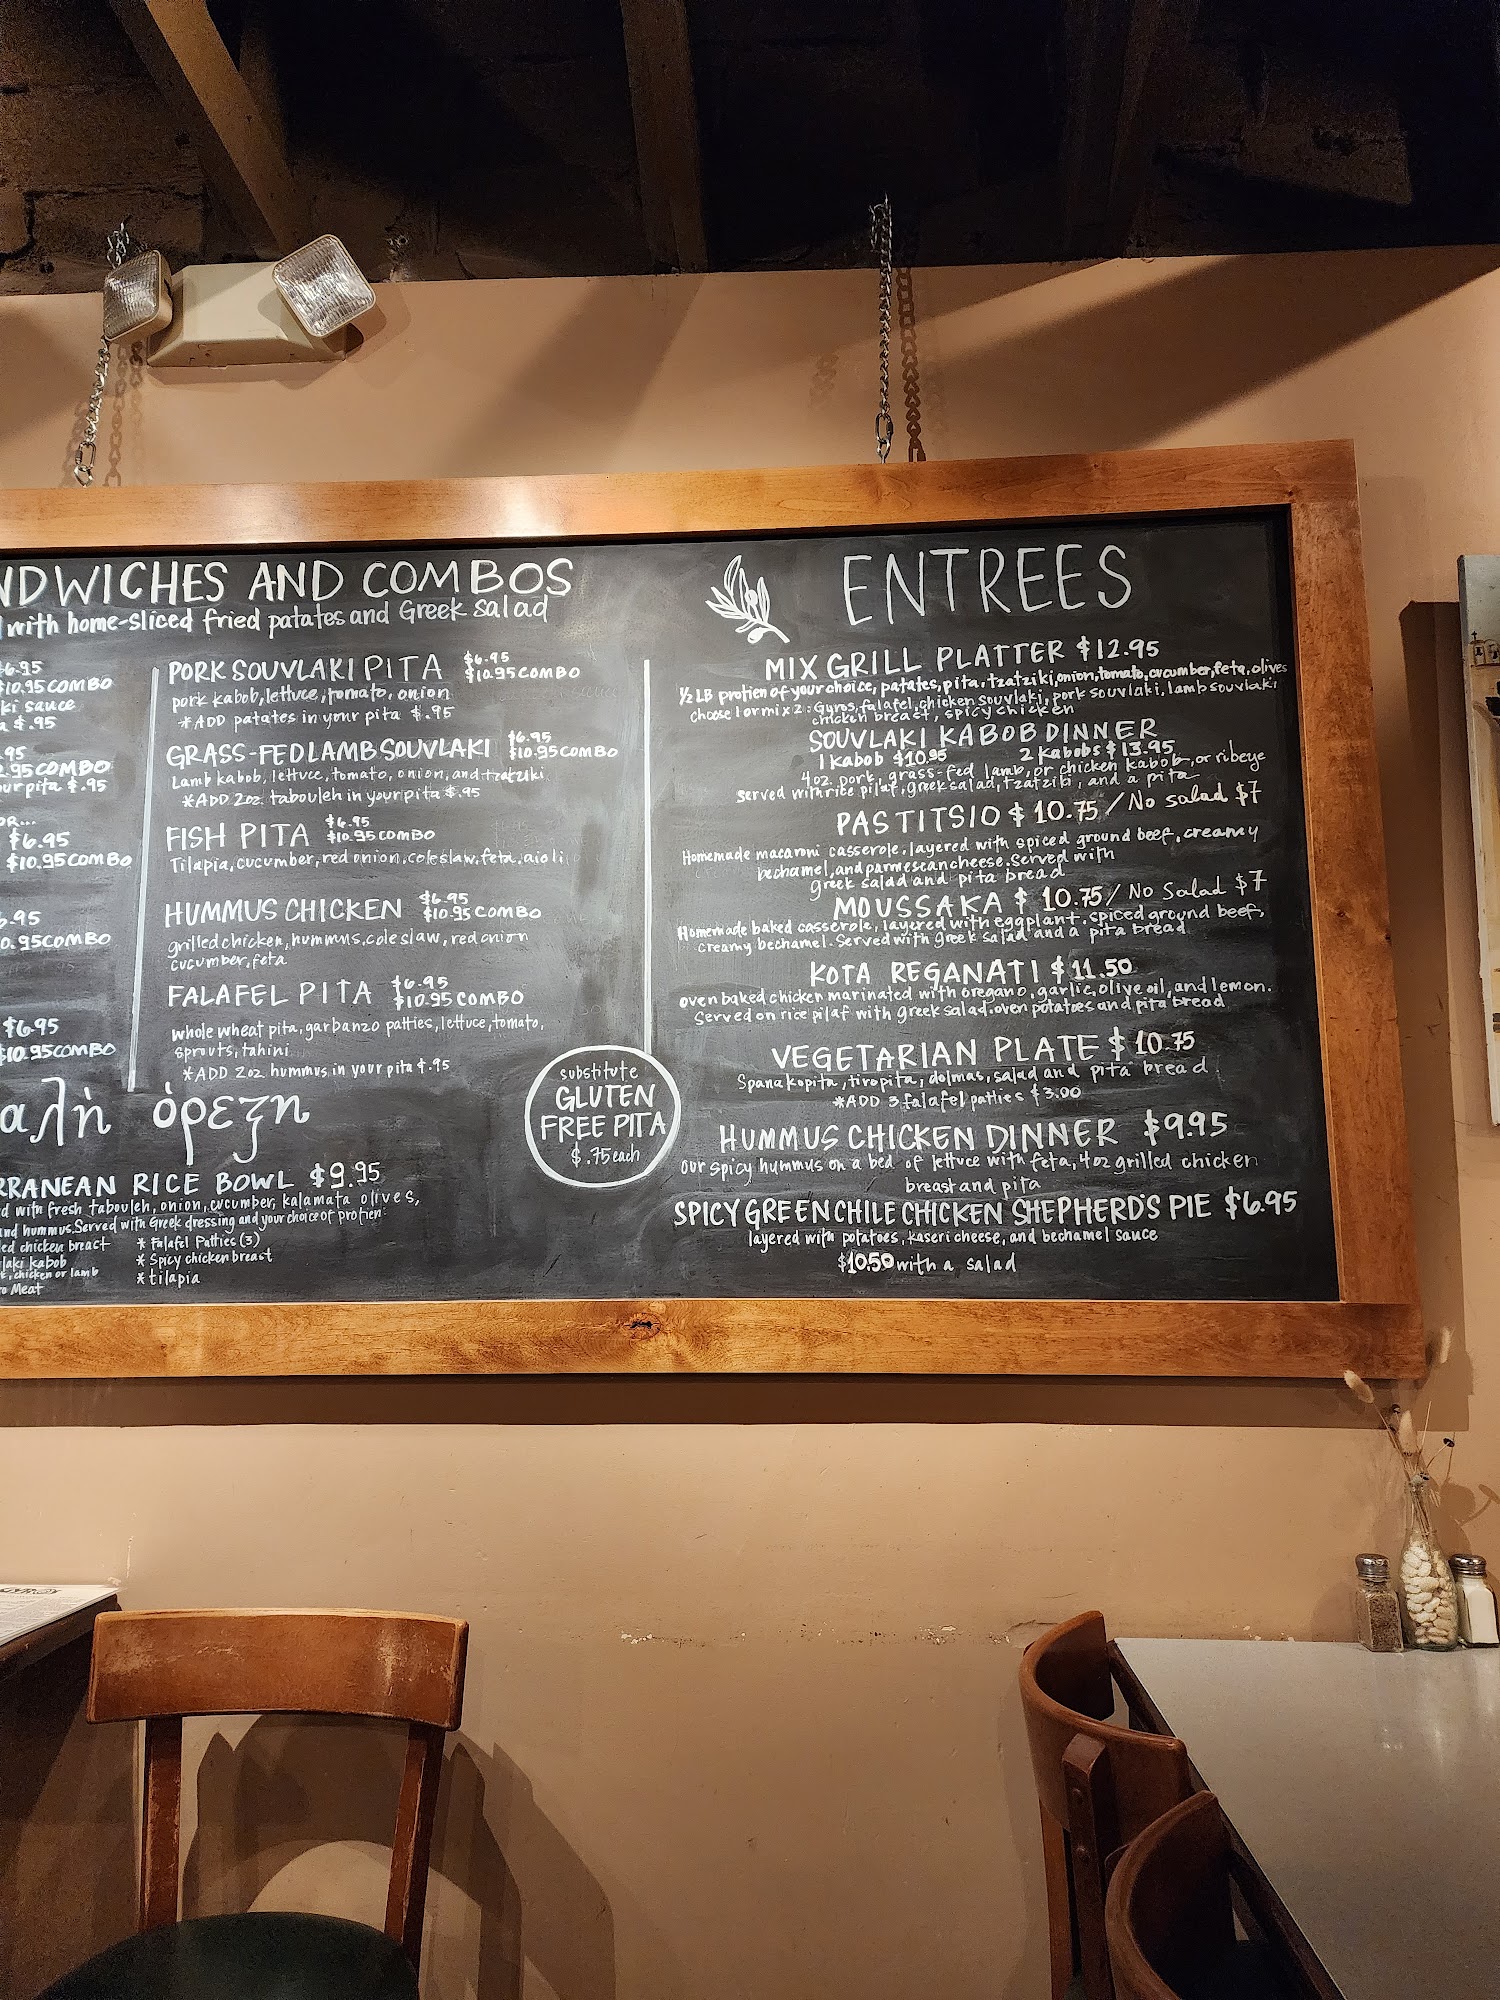 NDWICHES AND COMBOS
with home-sliced fried patates and Greek salad
$6.95
$10.95 COMBO
ki sauce
a $.95
.95
2.95 COMBO
ur pita $.95
OR...
$6.95
$10.95 COMBO
6.95
0.95 COMBO
$6.95
$10.95 COMBO
PORK SOUVLAKI PITA $6.95
$10.95 COMBO
pork kabob, lettuce, tomato, onion
*ADD patates in your pita $.95
GRASS-FED LAMB SOUVLAKI $6.95
$10.95 COMBO
Lamb kabob, lettuce, tomato, onion, and tzatziki
*ADD 2oz. tabouleh in your pita $.95
FISH PITA $6.95
$10.95 COMBO
Tilapia, cucumber, red onion, coleslaw, feta, aioli
HUMMUS CHICKEN $6.95
$10.95 COMBO
grilled chicken, hummus, cole slaw, red onion
cucumber, feta
FALAFEL PITA $6.95
$10.95 COMBO
whole wheat pita, garbanzo patties, lettuce, tomato,
sprouts, tahini
*ADD 2oz hummus in your pita $.95
αλὴ ὄρεξη
substitute
GLUTEN
FREE PITA
$.75 each
RRANEAN RICE BOWL $9.95
d with fresh tabouleh, onion, cucumber, kalamata olives,
and hummus. Served with Greek dressing and your choice of protien:
ed chicken breact * Falafel Patties (3)
laki kabob * Spicy chicken breast
k, chicken or lamb * tilapia
o Meat
ENTREES
MIX GRILL PLATTER $12.95
½ LB protien of your choice, patates, pita, tzatziki, onion, tomato, cucumber, feta, olives
choose 1 or mix 2: Gyros, falafel, chicken souvlaki, pork souvlaki, lamb souvlaki
chicken breast, spicy chicken
SOUVLAKI KABOB DINNER
1 kabob $10.95 2 kabobs $13.95
4oz. pork, grass-fed lamb, or chicken kabob, or ribeye
served with rice pilaf, greek salad, tzatziki, and a pita
PASTITSIO $10.75 / No salad $7
Homemade macaroni casserole, layered with spiced ground beef, creamy
bechamel, and parmesean cheese. Served with
greek salad and pita bread
MOUSSAKA $10.75 / No Salad $7
Homemade baked casserole, layered with eggplant, spiced ground beef,
creamy bechamel. Served with greek salad and a pita bread
KOTA REGANATI $11.50
oven baked chicken marinated with oregano, garlic, olive oil, and lemon.
Served on rice pilaf with greek salad, oven potatoes and pita bread
VEGETARIAN PLATE $10.75
Spanakopita, tiropita, dolmas, salad and pita bread
*ADD 3 falafel patties $3.00
HUMMUS CHICKEN DINNER $9.95
our spicy hummus on a bed of lettuce with feta, 4oz grilled chicken
breast and pita
SPICY GREEN CHILE CHICKEN SHEPHERD'S PIE $6.95
layered with potatoes, kaseri cheese, and bechamel sauce
$10.50 with a salad